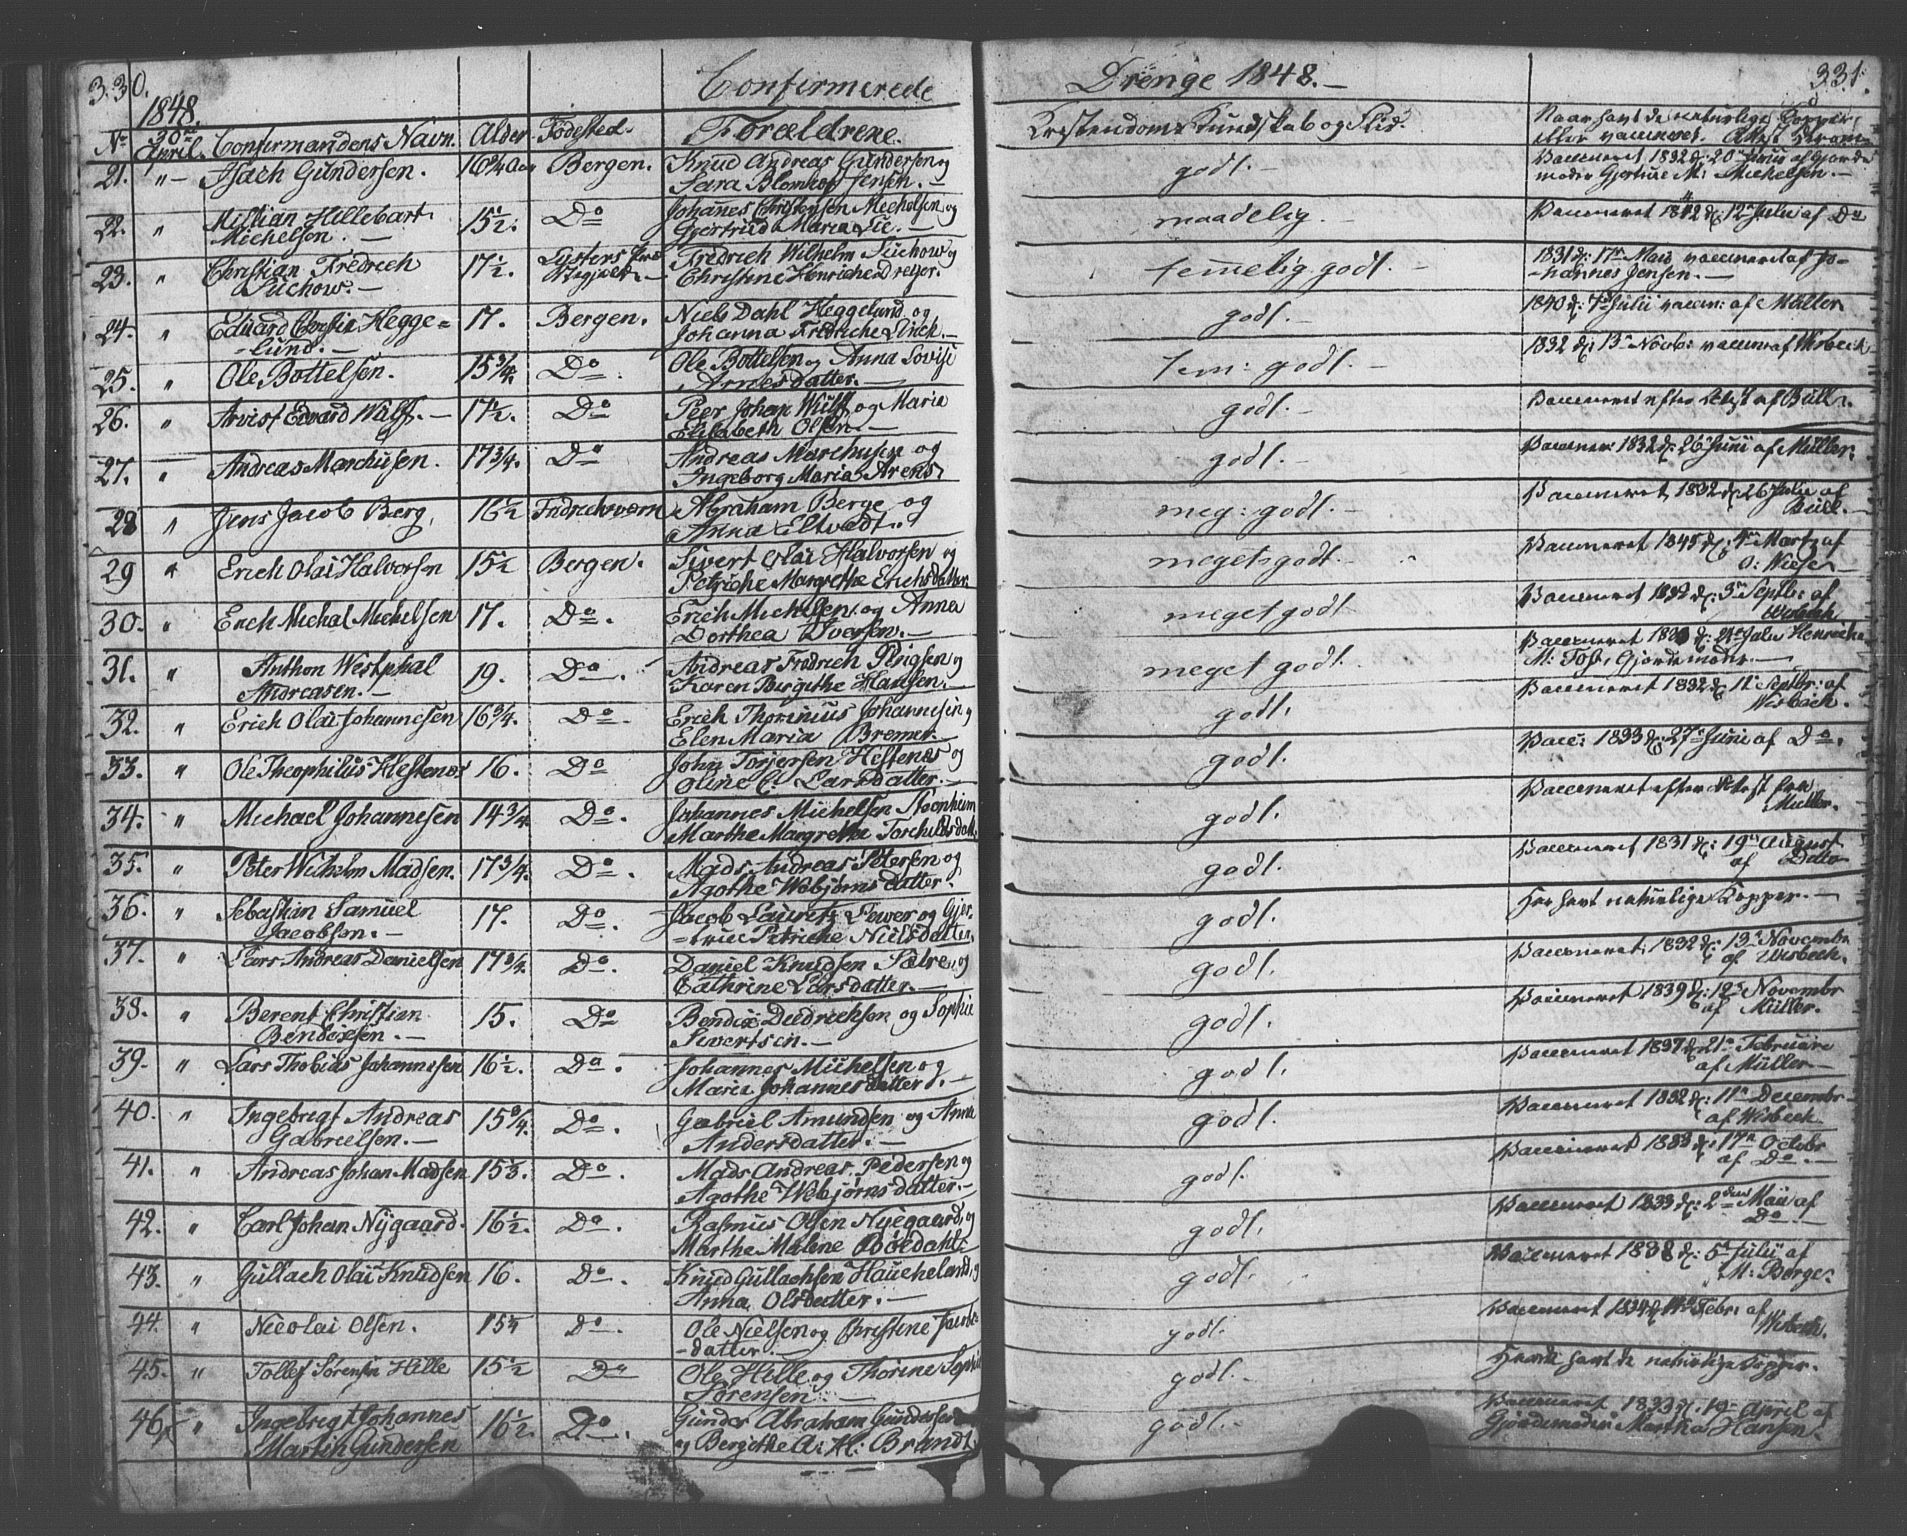 330.
Confirmerede
Drenge 1848.-
331.
1848.
No 30te April. Confirmandens Navn. Alder. Fødested. Forældrene. Kristendoms Kundskab og Flid.
21. "- Isach Gundersen. 16 3/4 Aar Bergen. Knud Andreas Gundersen og
Sara Jensen.- godt.- Vaccineret 1832 d: 20 Junii af Gjorde
moder M: Michelsen.-
22. " Hillebart
Michelsen.- 15 1/2. Do Johanes Christensen Mechelsen og
Gjertrud Maria maadelig.- Vaccineret 1842 d: 12 Julii af Do
23. " Christian Fredrich
Suchow.- 17 1/2. Lysters Præs
Fredrich Wilhelm Suchow og
Christine temmelig godt.- 1831 d: 17de Maii vaccineret af Jo-
hannes Jensen.-
24. " Eduard Hegge=
-lund.- 17. Bergen. Niels Dahl Heggelund og
Johanna Fredriche godt.- 1840 d: Julii vaccin: af Müller
25. " Ole Bottelsen. 15 3/4. Do. Ole Bottelsen og Anna Lovise
Arnesdatter.- tem: godt.- 1832 d: 13 Novb: vaccine af Wisbech
26. " Edvard Wulff.- 17 1/2. Do Peer Johan Wulff og Maria
Elisabeth Olsen.- godt.- Vaccineret efter Attest af Büll.
27. " Andreas Marchusen. 17 3/4. Do Andreas Marchusen og
Ingeborg Maria Arens. godt.- Vaccineret 1832 d: 26 Junii af Müller.
28 " Jens Jacob Berg. 16 1/2 Fredrichsværn Abraham Berge og
Anna meg: godt.- Vaccineret 1832 d: 26 Julii af
Büll.-
29 " Erich Olai Halvorsen 15 1/2 Bergen. Sivert Olai Halvorsen og
Petriche Margrethe Erichsdatter meget godt.- Vaccineret 1845 d: Marts af
O: Wiese
30. " Erich Michal Michelsen 17. Do. Erich Michelsen og Anna
Dorthea Iversen.- meget godt Vaccineret 1832 d: 3de Septbr: af
Wisbech.
31. " Anthon Westphal
Andreasen.- 19. Do. Andreas Fredrich og
Karen Bergithe Hansen.- meget godt. Julii Henriche
M: Gjordemoder.-
32. " Erich Olai Johannesen 16 3/4. Do. Erich Thorinius Johannesen og
Elen Maria Bremer. godt. Vaccineret 1832 d: 11 Septbr: af
Wisbech.
33. " Ole Theophilus Hestenes 16. Do John Torjersen Hestenes og
Oline C. Larsdatter.- godt. Vacc: 1833 d: 27de Junii af Do.
34. " Michael Johannesen 14 3/4. Do. Johannes Michelsen
Marthe Margrethe Torchildsdatt godt. Vaccineret efter Attest fra
Müller.
35. " Peter Wilhelm Madsen. 17 3/4. Do. Mads Andreas Petersen og
Agothe Webjørnsdatter. godt. Vaccineret 1831 d: 19de August
af Ditto
36. " Sebastian Samuel
Jacobsen.- 17. Do. Jacob Lauretz og Gjer-
-true Petriche Nielsdatter. godt. Har havt naturlige Kopper.-
37. " Lars Andreas Danielsen 17 3/4. Do. Daniel Knudsen Sælre, og
Cathrine Larsdatter.- godt. Vaccineret 1832 d: 13de Novembr
af Wisbech.
38. " Berent Christian
Bendixsen.- 15. Do Bendix Diedrechsen og Sophie
Sivertsen.- godt. Vaccineret 1839 d: 12te Novembr
af Müller.
39. " Lars Thobias Johannesen 16 1/2. Do. Johannes Michelsen og
Maria Johannesdatter.- godt. Vaccineret 1837 d: 21de Februarii
af Müller-
40. " Ingebrigt Andreas
Gabrielsen.- 15 3/4. Do. Gabriel Amundsen og Anna
Andersdatter.- godt. Vaccineret 1832 d: 11te Decembr
af Wisbech.
41. " Andreas Johan Madsen 15 1/2. Do. Mads Andreas Pedersen og
Agothe Webjørnsdatter.- godt. Vaccineret 1833 d: 17de Octobr
af Do.-
42. " Carl Johan Nygaard. 16 1/2. Do. Rasmus Olsen Nyegaard, og
Marthe Malene godt. Vaccineret 1833 d: 2den Maii af
Do.-
43. " Gullach Olai Knudsen 16. Do. Knud Gullachsen Haucheland, og
Anna Olsdatter.- godt. Vaccineret 1838 d: 5te Julii af
M: Berge.
44. " Nicolai Olsen. 15 1/2 Do. Ole Nielsen og Christine Jacobs-
-datter.- godt. Vaccineret 1834 Febr: af
Wisbech.
45. " Tollef Sørensen Hille 15 1/2 Do Ole Hille og Thorine Sophie
Sørensen.- godt.- Havde havt de naturlige Kopper.
46. " Ingebrigt Johannes
Martin Gundersen 16 1/2. Do. Gunder Abraham Gundersen
og Bergithe A: H: Brandt. godt.- Vaccineret 1833 d: 19de April af
Gjordemoder Martha Hansen.